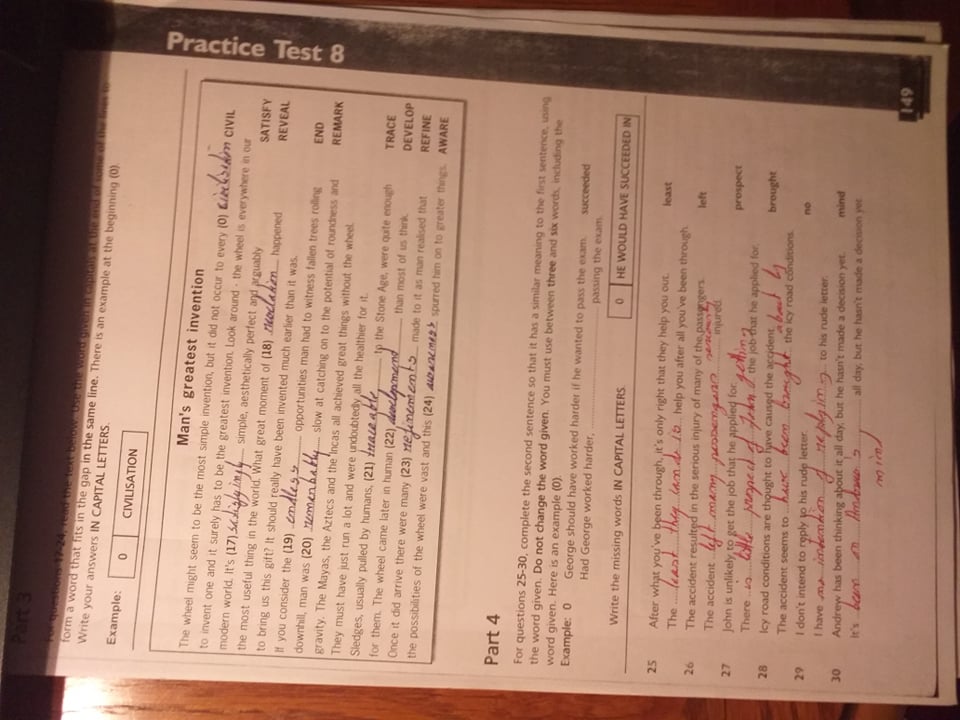 Part 3
For questions 17-24, read the text below. Use the word given in capitals at the end of some of the lines to
form a word that fits in the gap in the same line. There is an example at the beginning (0).
Write your answers IN CAPITAL LETTERS.
Example: 0 CIVILISATION
Man's greatest invention
The wheel might seem to be the most simple invention, but it did not occur to every (0) civilisation CIVIL
to invent one and it surely has to be the greatest invention. Look around - the wheel is everywhere in our
modern world. It's (17) satisfyingly simple, aesthetically perfect and arguably SATISFY
the most useful thing in the world. What great moment of (18) revelation happened REVEAL
to bring us this gift? It should really have been invented much earlier than it was.
If you consider the (19) endless opportunities man had to witness fallen trees rolling END
downhill, man was (20) remarkably slow at catching on to the potential of roundness and REMARK
gravity. The Mayas, the Aztecs and the Incas all achieved great things without the wheel.
They must have just run a lot and were undoubtedly all the healthier for it.
Sledges, usually pulled by humans, (21) traceable to the Stone Age, were quite enough TRACE
for them. The wheel came later in human (22) development than most of us think. DEVELOP
Once it did arrive there were many (23) refinements made to it as man realised that REFINE
the possibilities of the wheel were vast and this (24) awareness spurred him on to greater things. AWARE
Part 4
For questions 25-30, complete the second sentence so that it has a similar meaning to the first sentence, using
the word given. Do not change the word given. You must use between three and six words, including the
word given. Here is an example (0).
Example: 0 George should have worked harder if he wanted to pass the exam. succeeded
Had George worked harder, .......... passing the exam.
Write the missing words IN CAPITAL LETTERS. 0 HE WOULD HAVE SUCCEEDED IN
25 After what you've been through, it's only right that they help you out. least
The least they can do is help you after all you've been through.
26 The accident resulted in the serious injury of many of the passengers. left
The accident left many passengers seriously injured.
27 John is unlikely to get the job that he applied for. prospect
There is little prospect of John getting the job that he applied for.
28 Icy road conditions are thought to have caused the accident. brought
The accident seems to have been brought about by the icy road conditions.
29 I don't intend to reply to his rude letter. no
I have no intention of replying to his rude letter.
30 Andrew has been thinking about it all day, but he hasn't made a decision yet. mind
It's been on Andrew's mind all day, but he hasn't made a decision yet.
Practice Test 8
149